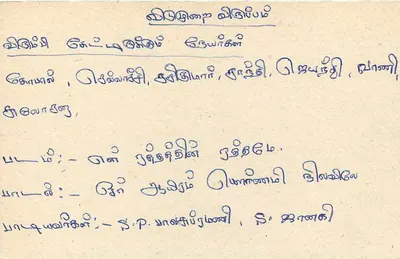 விடுமுறை விருப்பம்
விரும்பி கேட்டிருக்கும் நேயர்கள்
கோமால், செல்லாச்சி, சசிகுமார், சாந்தி, ஜெயந்தி, வாணி,
சுலோசனா,
படம்:- என் ரத்தத்தின் ரத்தமே.
பாடல்:- ஓர் ஆயிரம் பௌர்ணமி நிலவிலே
பாடியவர்கள்:- S.P. பாலசுப்ரமணி, S. ஜானகி